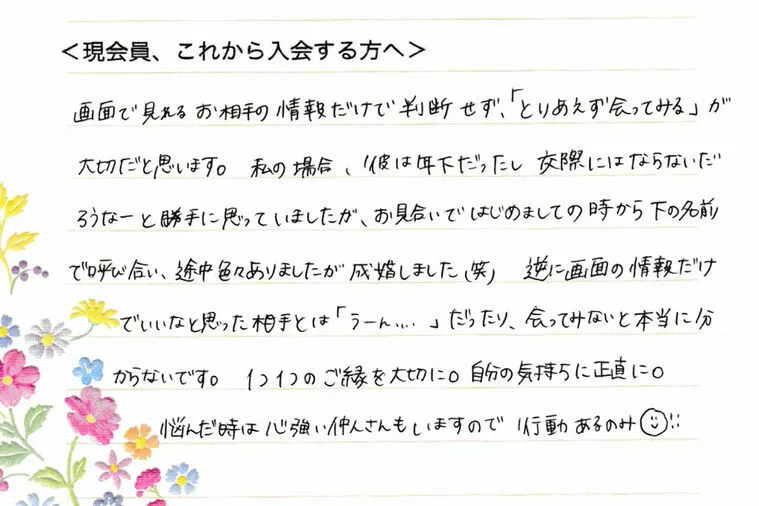 ＜現会員、これから入会する方へ＞
画面で見れるお相手の情報だけで判断せず、「とりあえず会ってみる」が
大切だと思います。 私の場合、彼は年下だったし 交際にはならないだ
ろうなーと勝手に思っていましたが、お見合いではじめましての時から下の名前
で呼び合い、途中色々ありましたが 成婚しました(笑) 逆に画面の情報だけ
でいいなと思った相手とは「うーん....」だったり、会ってみないと本当に分
からないです。 1つ1つのご縁を大切に。自分の気持ちに正直に。
悩んだ時は心強い仲人さんもいますので 行動あるのみ☺!!